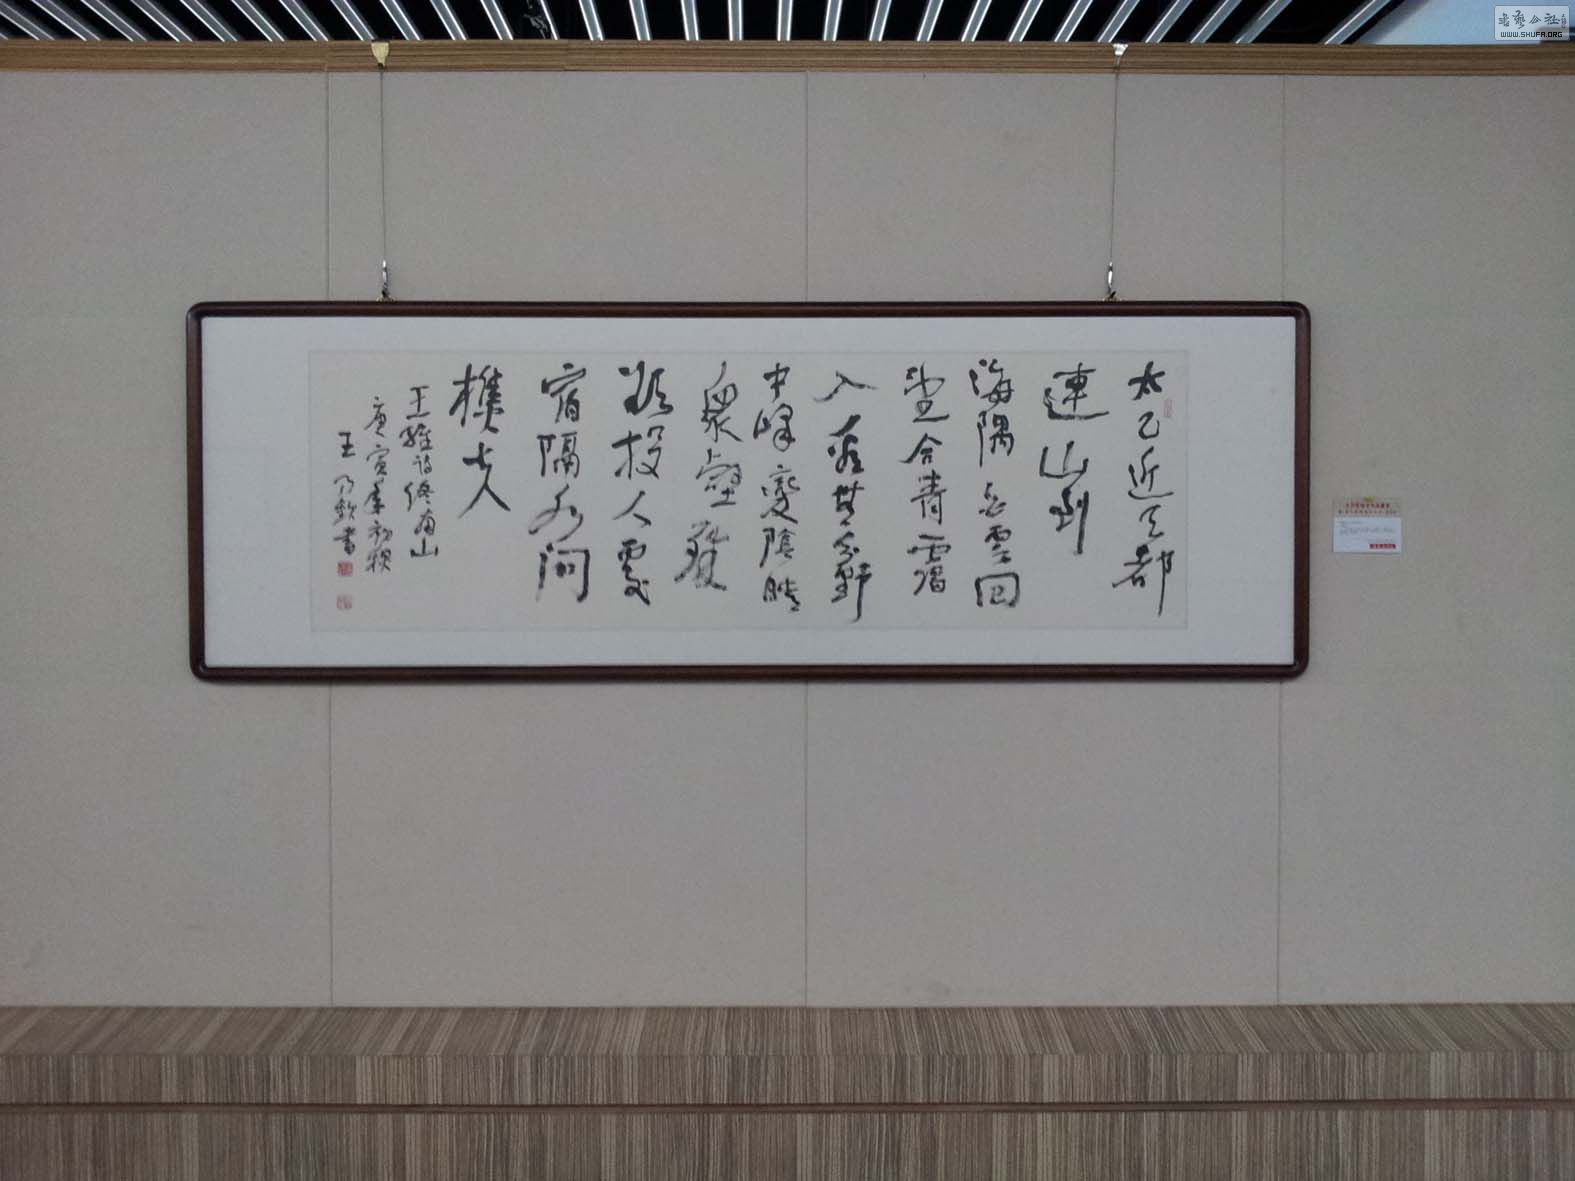 太乙近天都
連山到
海隅白雲回
望合青靄
入看無分野
中峰變陰晴
衆壑殊
欲投人處
宿隔水問
樵夫
王維詩終南山
庚寅年初秋
王乃欽書
書藝公社
WWW.SHUFA.ORG